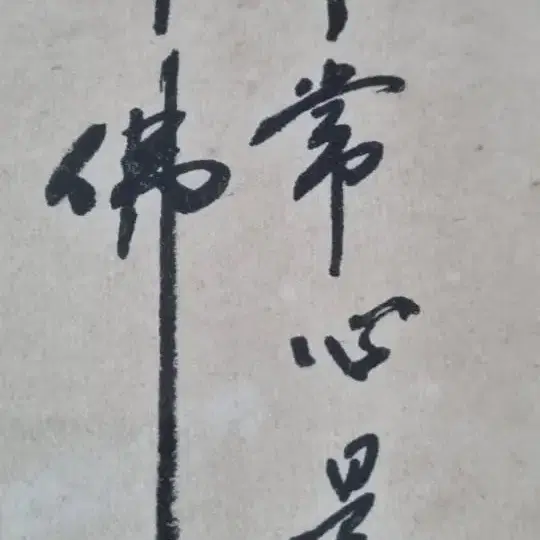 常心是
佛